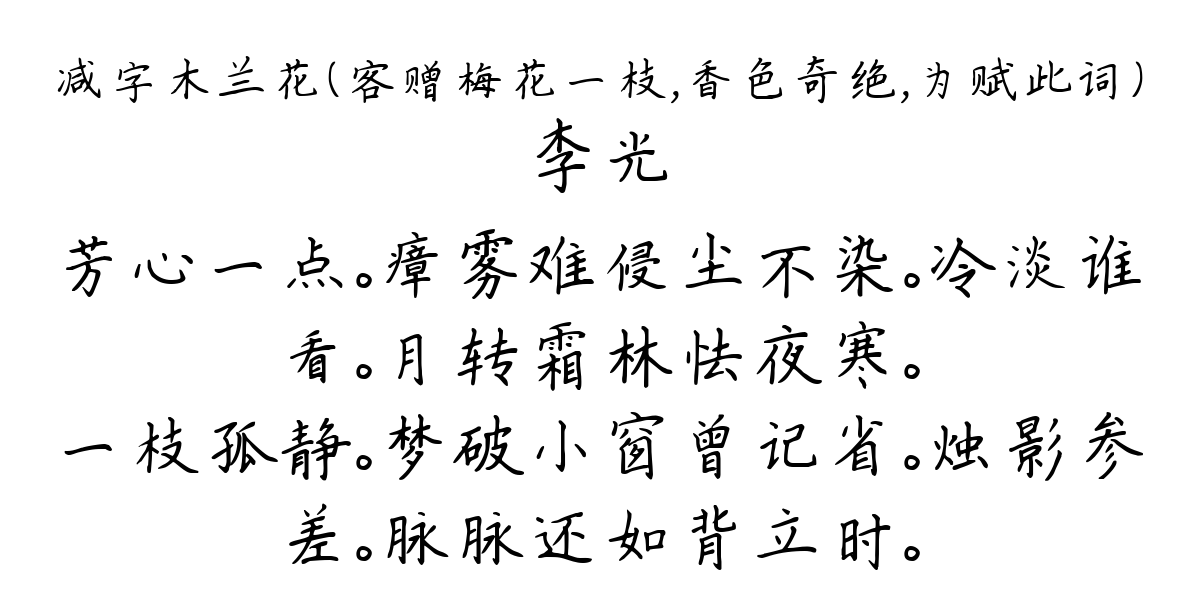 减字木兰花(客赠梅花一枝,香色奇绝,为赋此词)
李光
芳心一点。瘴雾难侵尘不染。冷淡谁
看。月转霜林怯夜寒。
一枝孤静。梦破小窗曾记省。烛影参
差。脉脉还如背立时。